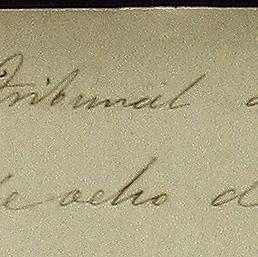 Tribunal d
de ocho d